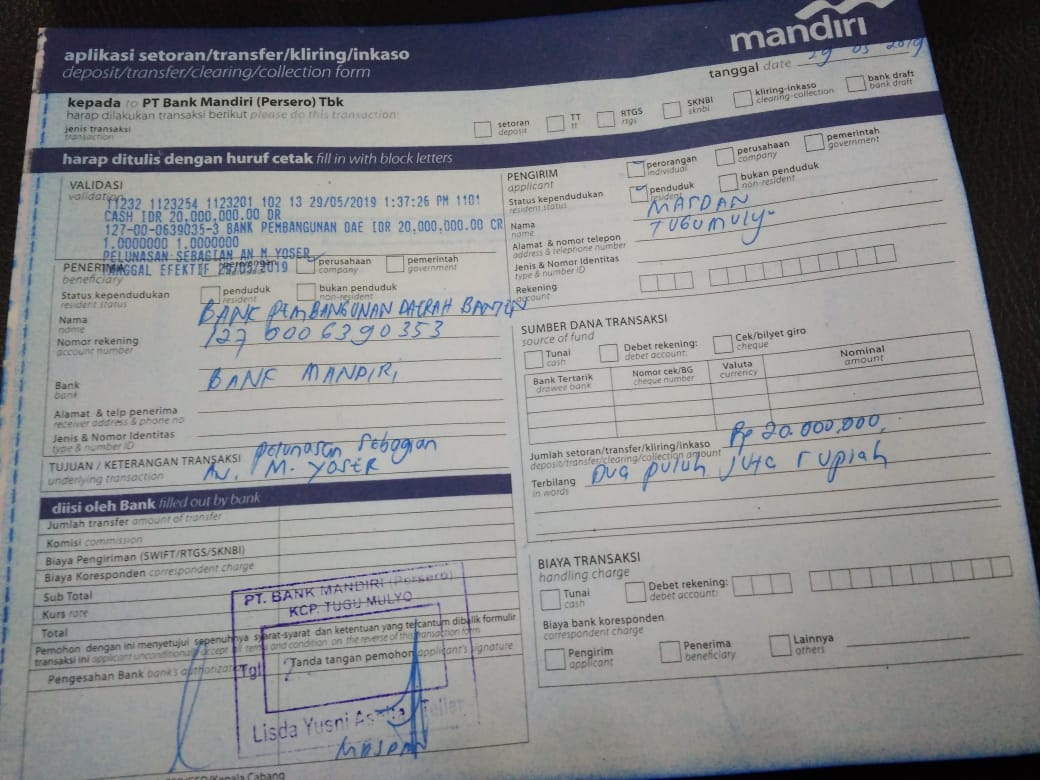 mandiri
aplikasi setoran/transfer/kliring/inkaso
deposit/transfer/clearing/collection form
tanggal date 29 05 2019
kepada to PT Bank Mandiri (Persero) Tbk
harap dilakukan transaksi berikut please do this transaction:
jenis transaksi
transaction
setoran
deposit
TT
tt
RTGS
rtgs
SKNBI
sknbi
kliring-inkaso
clearing-collection
bank draft
bank draft
harap ditulis dengan huruf cetak fill in with block letters
VALIDASI
validation
11232 1123254 1123201 102 13 29/05/2019 1:37:26 PM 1101
CASH IDR 20,000,000.00 DR
127-00-0639035-3 BANK PEMBANGUNAN DAE IDR 20,000,000.00 CR
1.0000000 1.0000000
PELUNASAN SEBAGIAN AN M YOSER
TANGGAL EFEKTIF 29/05/2019
PENERIMA
beneficiary
perusahaan
company
pemerintah
government
Status kependudukan
resident status
penduduk
resident
bukan penduduk
non-resident
Nama
name
BANK PEMBANGUNAN DAERAH BANTEN
Nomor rekening
account number
127 000 6390353
Bank
bank
BANK MANDIRI
Alamat & telp penerima
receiver address & phone no
Jenis & Nomor Identitas
type & number ID
TUJUAN / KETERANGAN TRANSAKSI
underlying transaction
pelunasan Sebagian
AN. M. YOSER
PENGIRIM
applicant
perorangan
individual
perusahaan
company
pemerintah
government
Status kependudukan
resident status
penduduk
resident
bukan penduduk
non-resident
Nama
name
MASDAN
Alamat & nomor telepon
address & telephone number
TUGUMULYO
Jenis & Nomor Identitas
type & number ID
Rekening
account
SUMBER DANA TRANSAKSI
source of fund
Tunai
cash
Debet rekening:
debet account:
Cek/bilyet giro
cheque
Bank Tertarik
drawee bank
Nomor cek/BG
cheque number
Valuta
currency
Nominal
amount
Jumlah setoran/transfer/kliring/inkaso
deposit/transfer/clearing/collection amount
Rp 20.000.000,
Terbilang
in words
Dua puluh juta rupiah
diisi oleh Bank filled out by bank
Jumlah transfer amount of transfer
Komisi commission
Biaya Pengiriman (SWIFT/RTGS/SKNBI)
Biaya Koresponden correspondent charge
Sub Total
Kurs rate
Total
Pemohon dengan ini menyetujui sepenuhnya syarat-syarat dan ketentuan yang tercantum dibalik formulir
transaksi ini applicant unconditionally accept all terms and condition on the reverse of this transaction form
Pengesahan Bank bank's authorization
Tanda tangan pemohon applicant's signature
PT. BANK MANDIRI (Persero)
KCP. TUGU MULYO
Tgl
Lisda Yusni
Teller
MASDAN
Kepala Cabang
BIAYA TRANSAKSI
handling charge
Tunai
cash
Debet rekening:
debet account:
Biaya bank koresponden
correspondent charge
Pengirim
applicant
Penerima
beneficiary
Lainnya
others